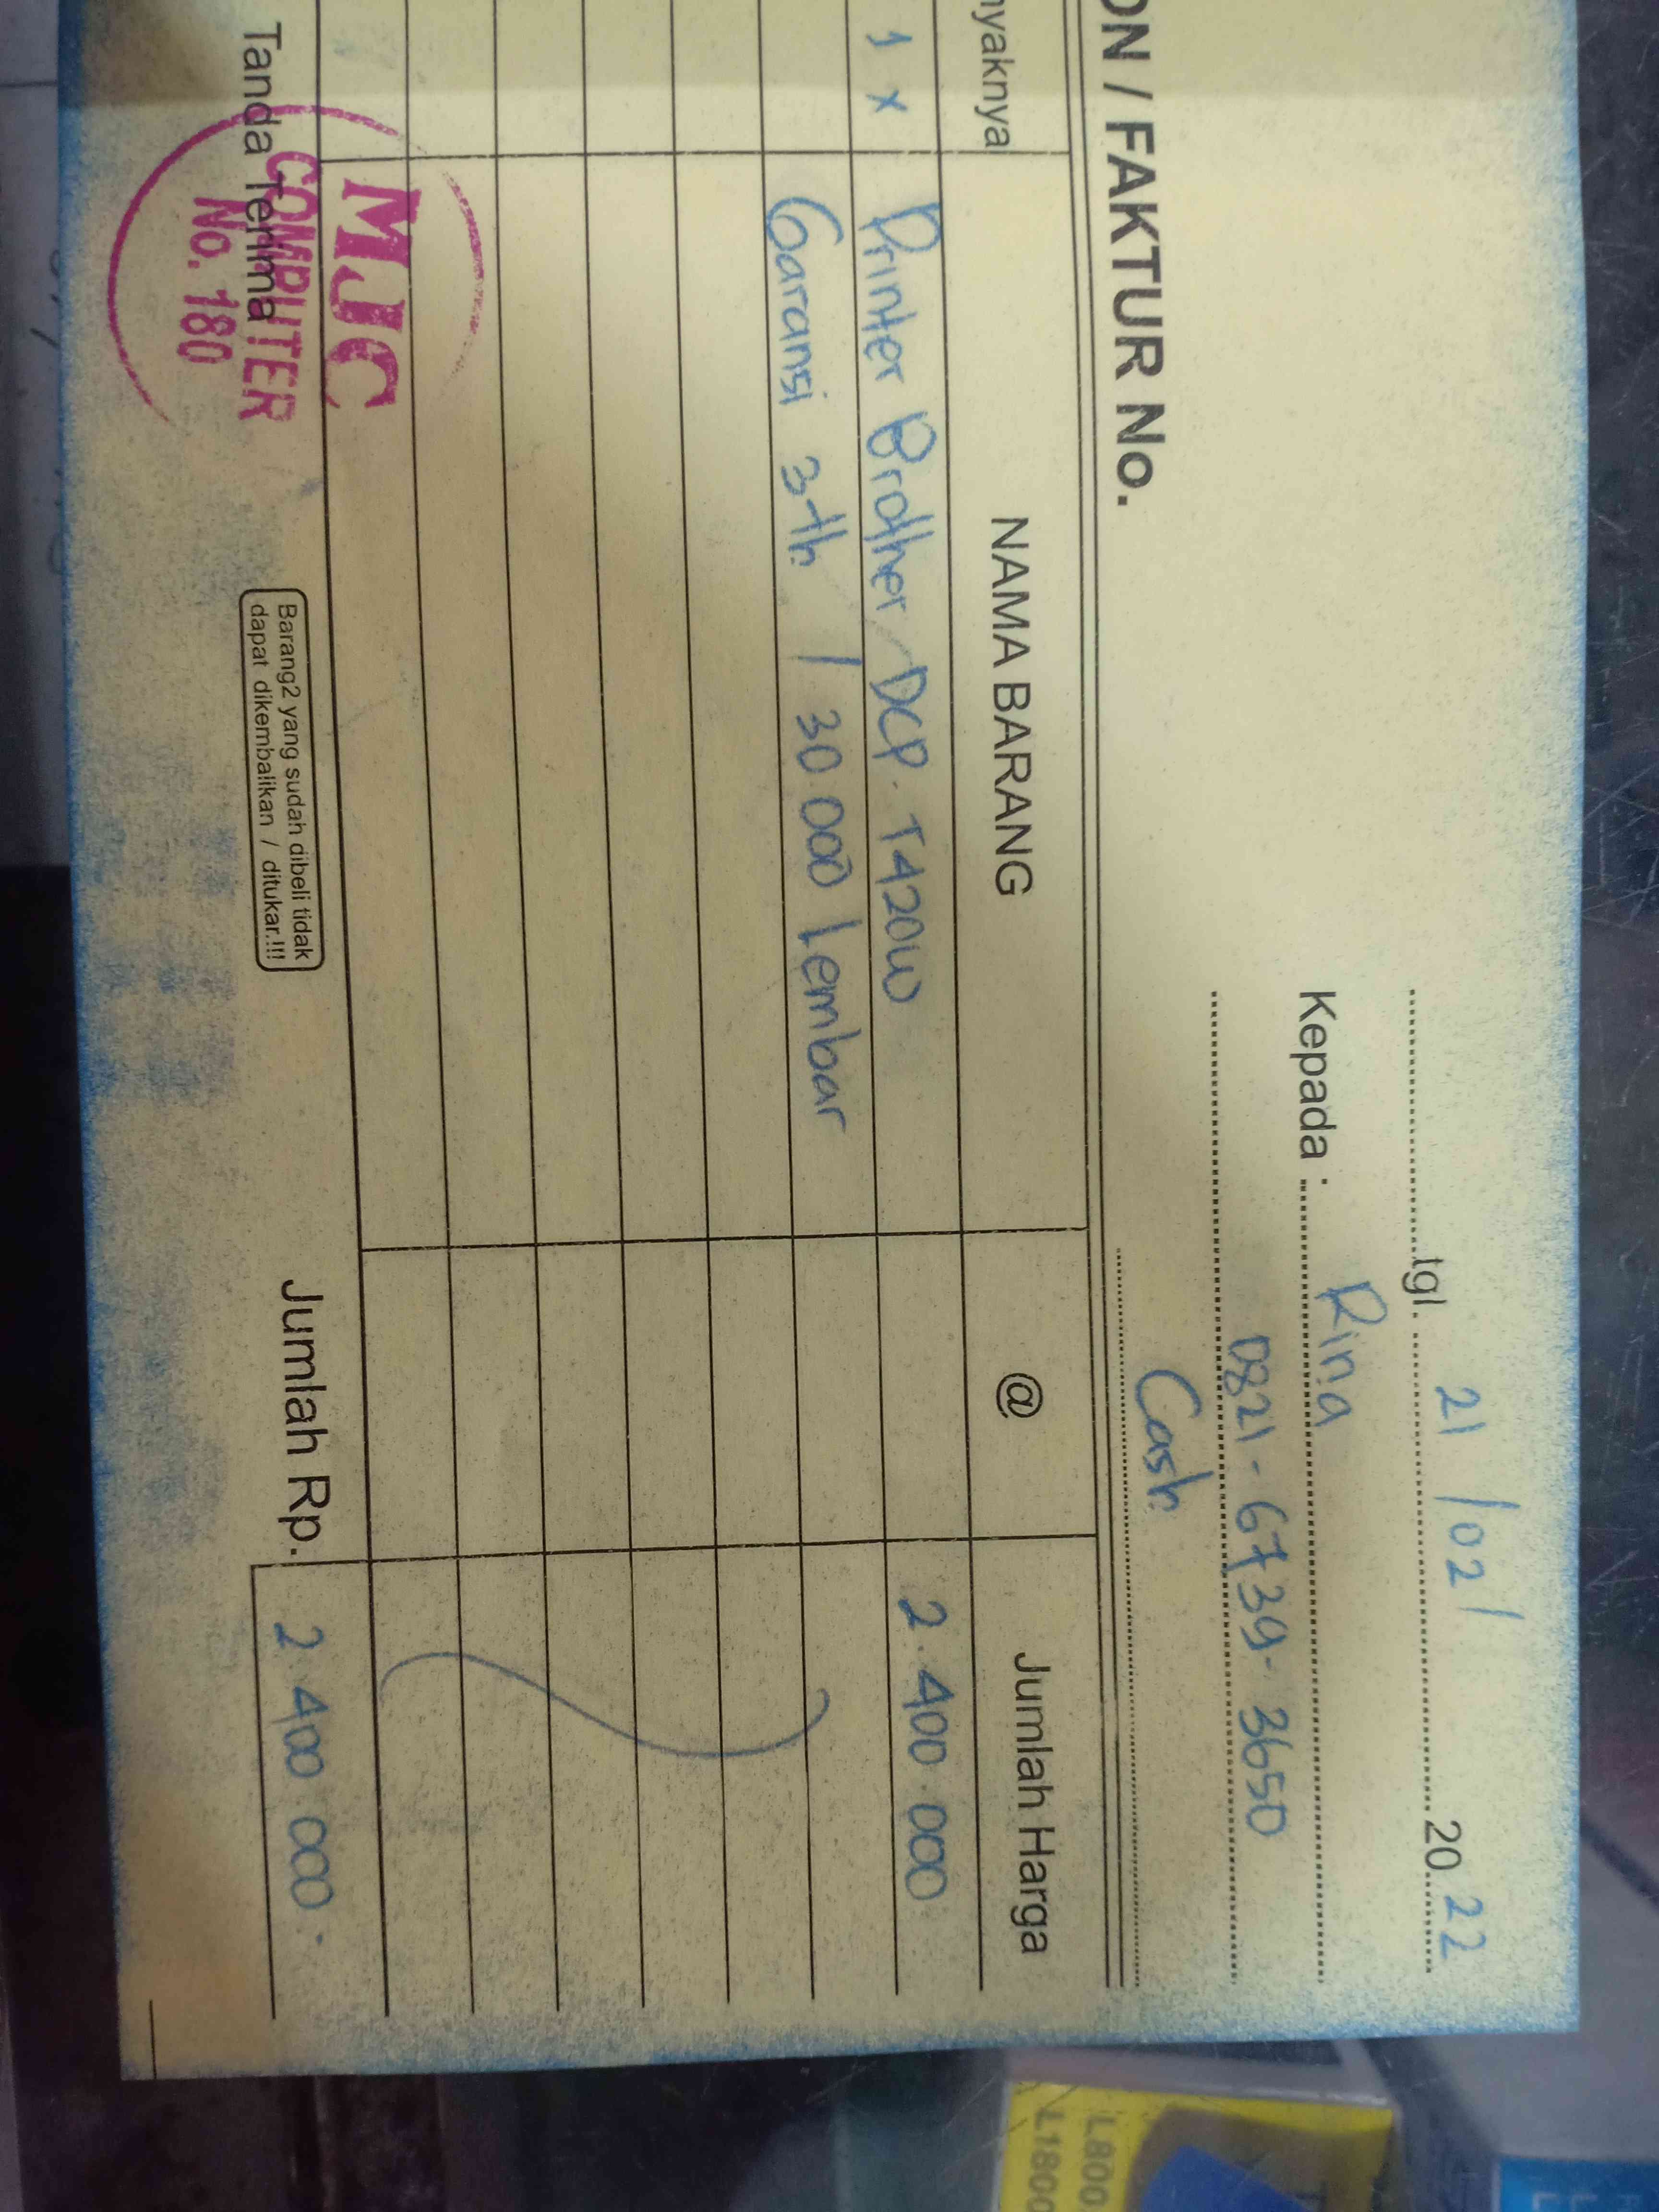 tgl. 21 / 02 / 2022
Kepada : Rina
0821-6739-3650
Cash
ON / FAKTUR No.
nyaknya NAMA BARANG @ Jumlah Harga
1 x Printer Brother DCP-T420W 2.400.000
Garansi 3 th / 30.000 Lembar
Tanda Terima
MJC
COMPUTER
No. 180
Barang2 yang sudah dibeli tidak
dapat dikembalikan / ditukar.!!!
Jumlah Rp. 2.400.000.-
L800
L1800